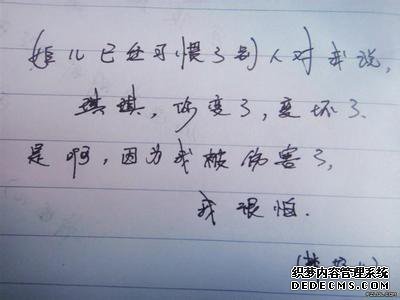 姐儿已经习惯了别人对我说,
琪琪,你变了,变坏了.
是啊,因为我被伤害了,
我很怕.
织梦内容管理系统
DEDECMS.COM